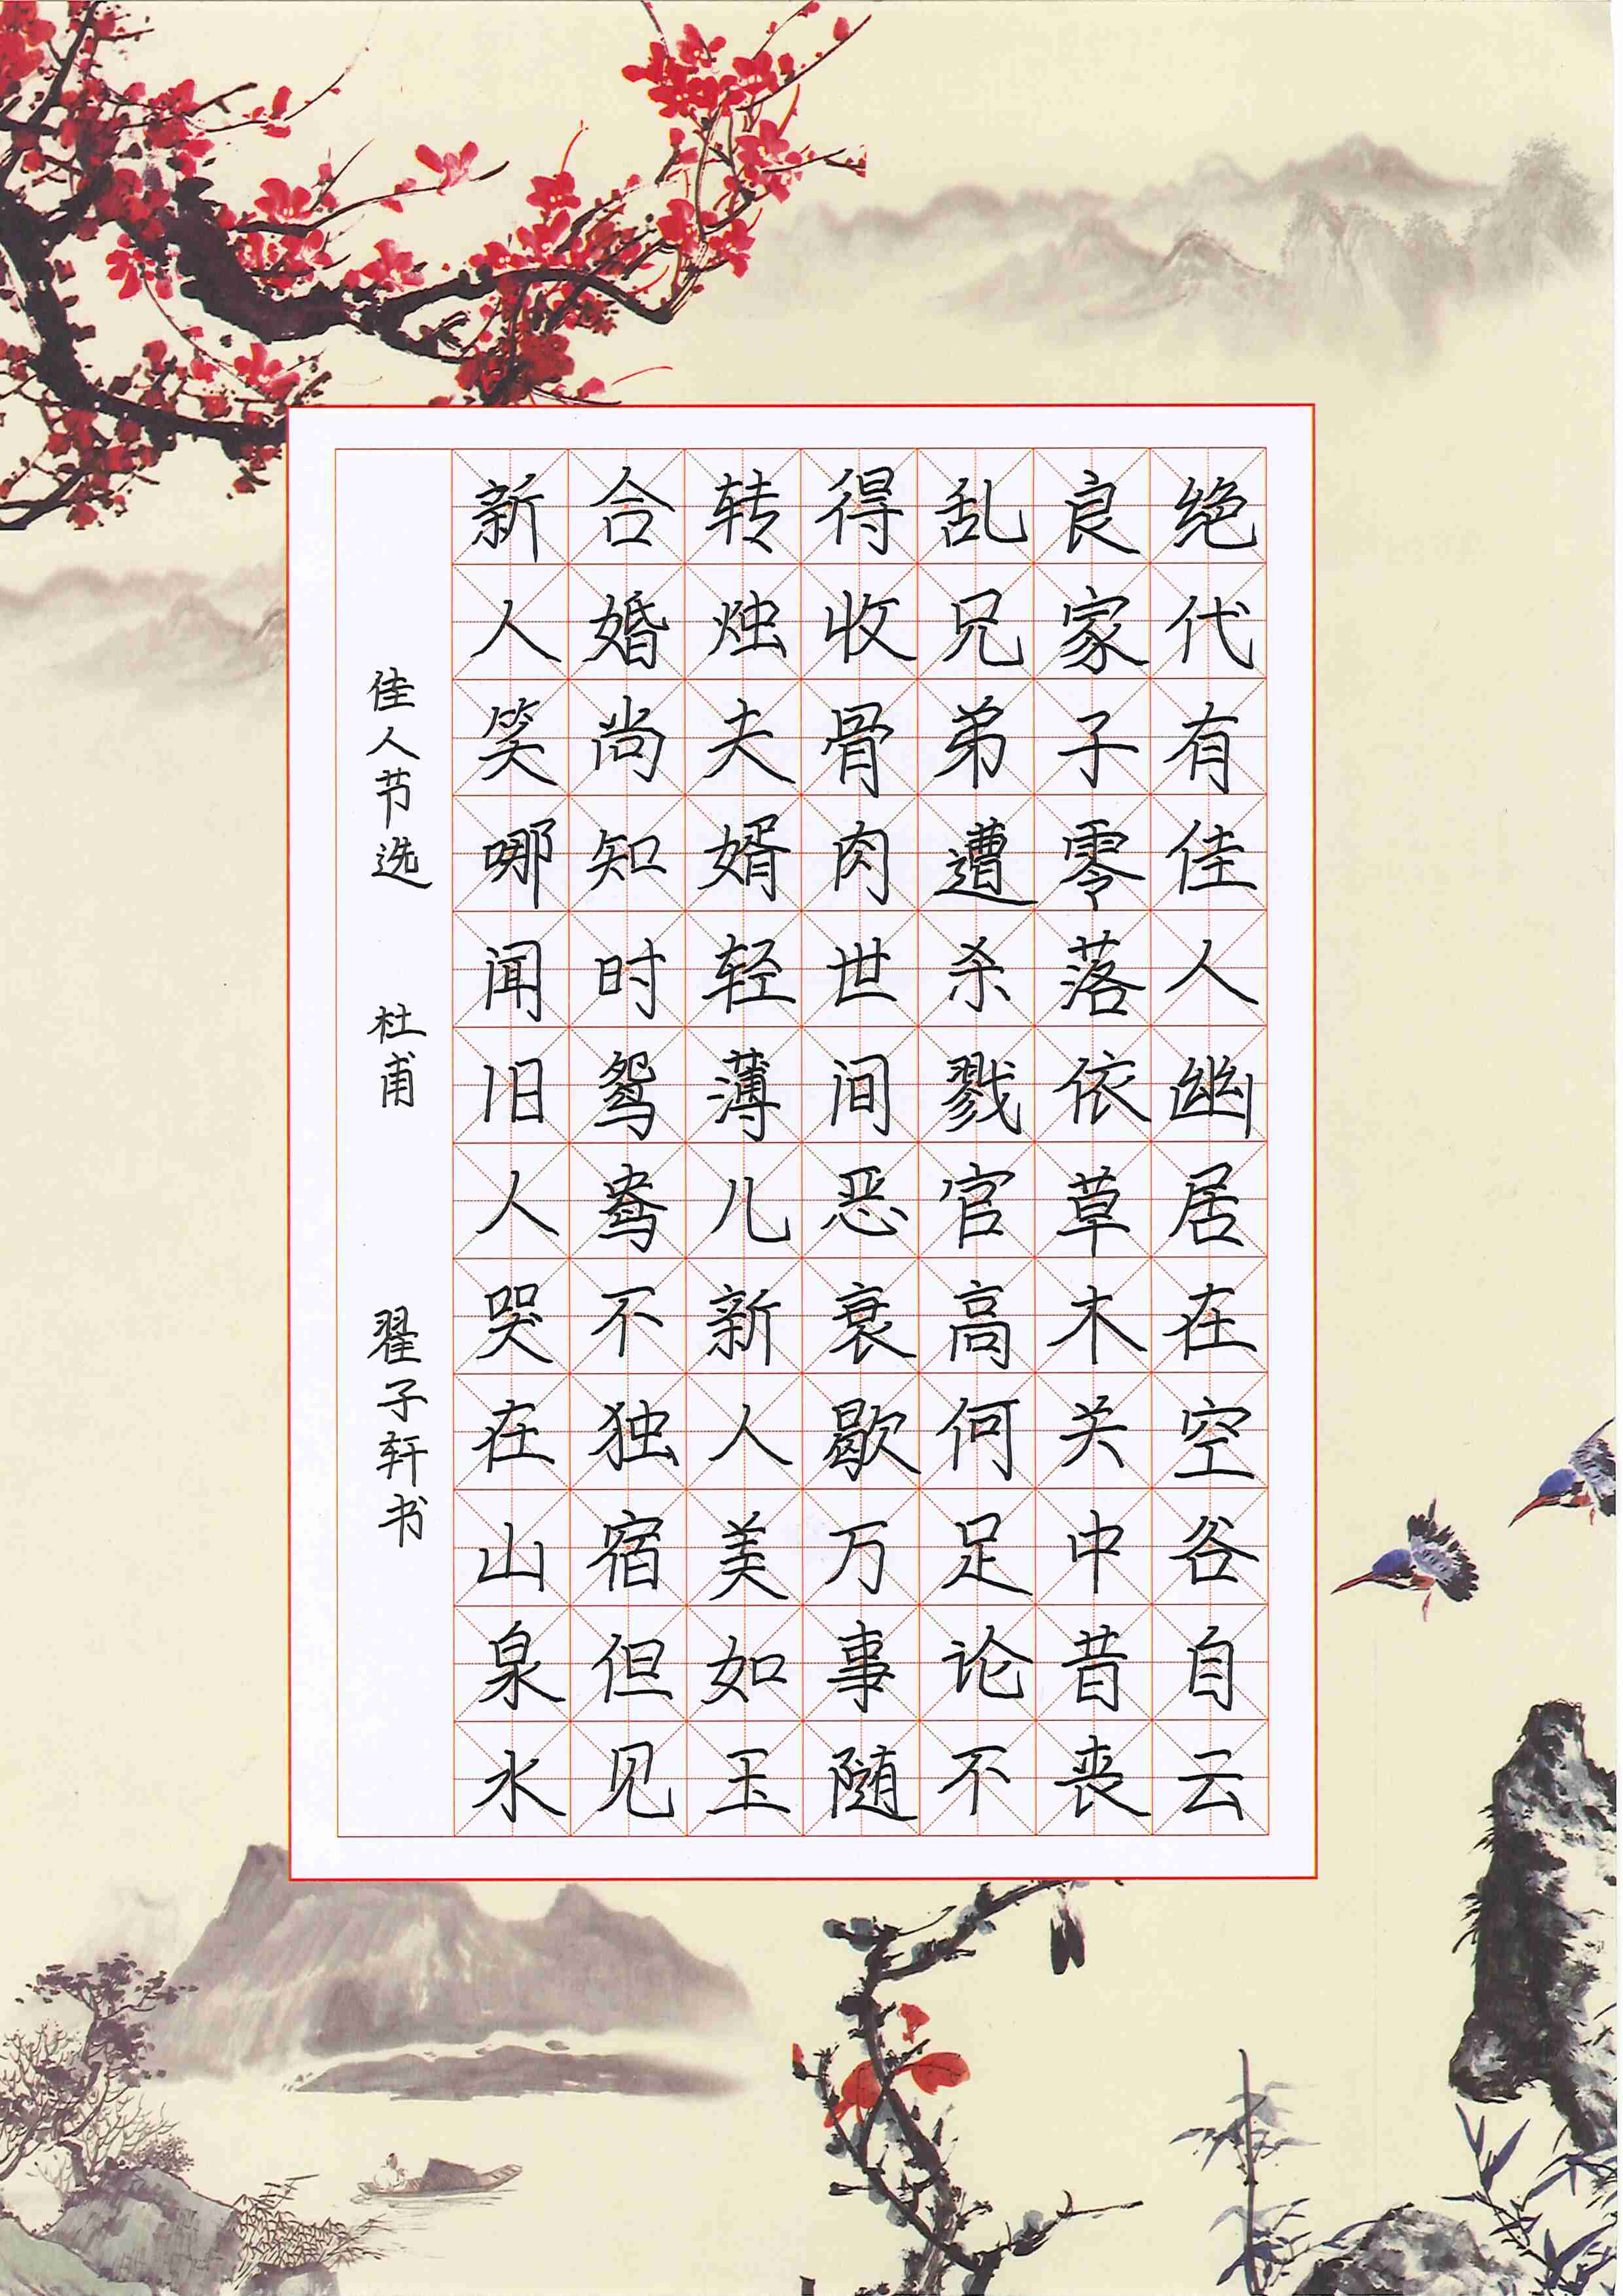 绝代有佳人幽居在空谷自云
良家子零落依草木关中昔丧
乱兄弟遭杀戮官高何足论不
得收骨肉世间恶衰歇万事随
转烛夫婿轻薄儿新人美如玉
合婚尚知时鸳鸯不独宿但见
新人笑哪闻旧人哭在山泉水
佳人节选 杜甫 翟子轩书